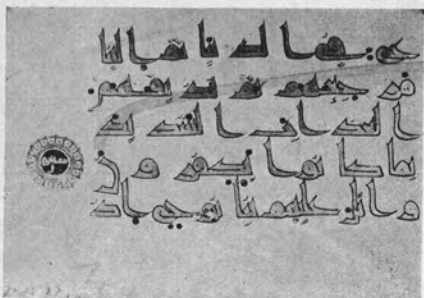 ع فى الدنيا ثم الينا
مرجعهم ثم نذيقهم
العذاب الشديد
بما كانوا يكفرون
واتل عليهم نبا نوح اذ